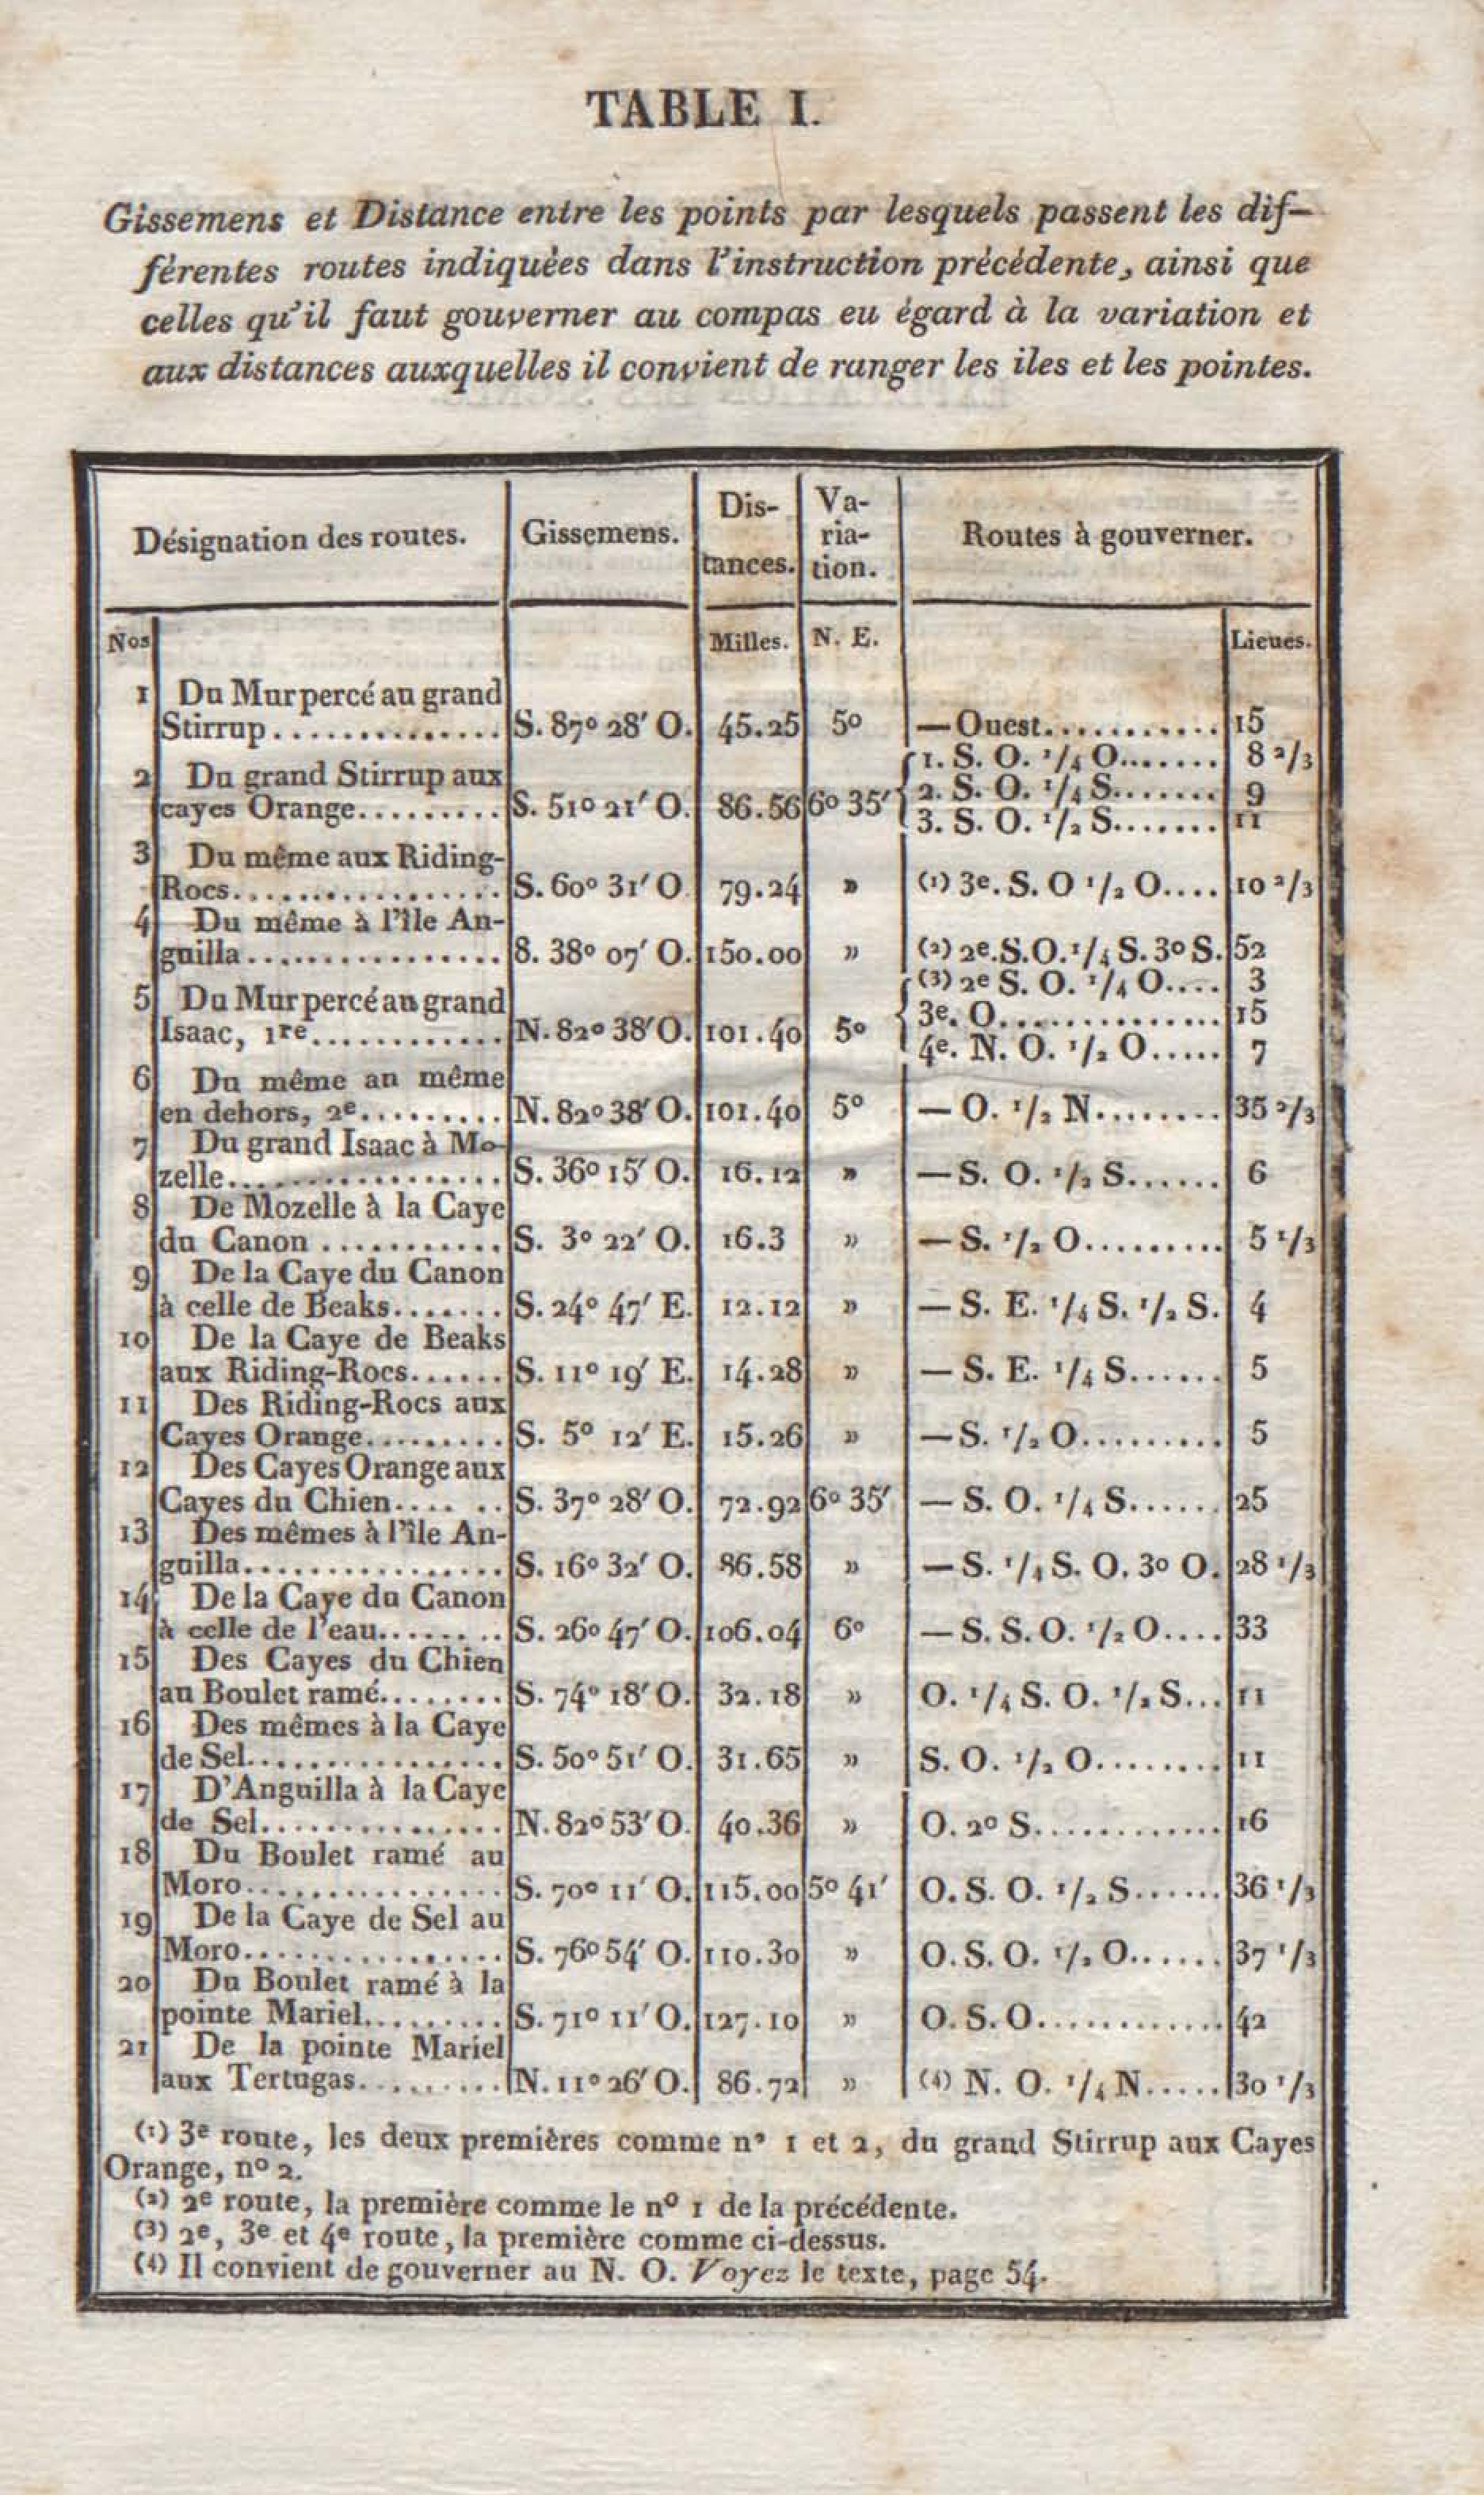 TABLE I.
Gissemens et Distance entre les points par lesquels passent les dif-
férentes routes indiquées dans l'instruction précédente, ainsi que
celles qu'il faut gouverner au compas eu égard à la variation et
aux distances auxquelles il convient de ranger les iles et les pointes.
Désignation des routes. Gissemens. Dis-tances. Va-ria-tion. Routes à gouverner.
Nos Milles. N. E. Lieues.
1 Du Mur percé au grand
Stirrup.............. S. 87º 28' O. 45.25 5º — Ouest........... 15
1. S. O. 1/4 O....... 8 2/3
2 Du grand Stirrup aux
cayes Orange......... S. 51º 21' O. 86.56 6º 35' 2. S. O. 1/4 S....... 9
3. S. O. 1/2 S....... 11
3 Du même aux Riding-
Rocs................. S. 60º 31' O. 79.24 » (1) 3e. S. O 1/2 O.... 10 2/3
4 Du même à l'île An-
guilla................ 8. 38º 07' O. 150.00 » (2) 2e. S. O. 1/4 S. 3º S. 52
(3) 2e S. O. 1/4 O.... 3
5 Du Mur percé au grand
3e. O.............. 15
Isaac, 1re............ N. 82º 38' O. 101.40 5º
4e. N. O. 1/2 O..... 7
6 Du même an même
en dehors, 2e......... N. 82º 38' O. 101.40 5º — O. 1/2 N........ 35 2/3
7 Du grand Isaac à Mo-
zelle................. S. 36º 15' O. 16.12 » — S. O. 1/2 S...... 6
8 De Mozelle à la Caye
du Canon ........... S. 3º 22' O. 16.3 » — S. 1/2 O......... 5 1/3
9 De la Caye du Canon
à celle de Beaks....... S. 24º 47' E. 12.12 » — S. E. 1/4 S. 1/2 S. 4
10 De la Caye de Beaks
aux Riding-Rocs...... S. 11º 19' E. 14.28 » — S. E. 1/4 S...... 5
11 Des Riding-Rocs aux
Cayes Orange......... S. 5º 12' E. 15.26 » — S. 1/2 O......... 5
12 Des Cayes Orange aux
Cayes du Chien.... .. S. 37º 28' O. 72.92 6º 35' — S. O. 1/4 S...... 25
13 Des mêmes à l'île An-
guilla................ S. 16º 32' O. 86.58 » — S. 1/4 S. O. 3º O. 28 1/3
14 De la Caye du Canon
à celle de l'eau...... .. S. 26º 47' O. 106.04 6º — S. S. O. 1/2 O.... 33
15 Des Cayes du Chien
au Boulet ramé........ S. 74º 18' O. 32.18 » O. 1/4 S. O. 1/2 S... 11
16 Des mêmes à la Caye
de Sel................ S. 50º 51' O. 31.65 » S. O. 1/2 O........ 11
17 D'Anguilla à la Caye
de Sel............... N. 82º 53' O. 40.36 » O. 2º S............ 16
18 Du Boulet ramé au
Moro................ S. 70º 11' O. 115.00 5º 41' O. S. O. 1/2 S...... 36 1/3
19 De la Caye de Sel au
Moro................ S. 76º 54' O. 110.30 » O. S. O. 1/2 O...... 37 1/3
20 Du Boulet ramé à la
pointe Mariel......... S. 71º 11' O. 127.10 » O. S. O............ 42
21 De la pointe Mariel
aux Tertugas.......... N. 11º 26' O. 86.72 » (4) N. O. 1/4 N..... 30 1/3
(1) 3e route, les deux premières comme nº 1 et 2, du grand Stirrup aux Cayes
Orange, nº 2.
(2) 2e route, la première comme le nº 1 de la précédente.
(3) 2e, 3e et 4e route, la première comme ci-dessus.
(4) Il convient de gouverner au N. O. Voyez le texte, page 54.